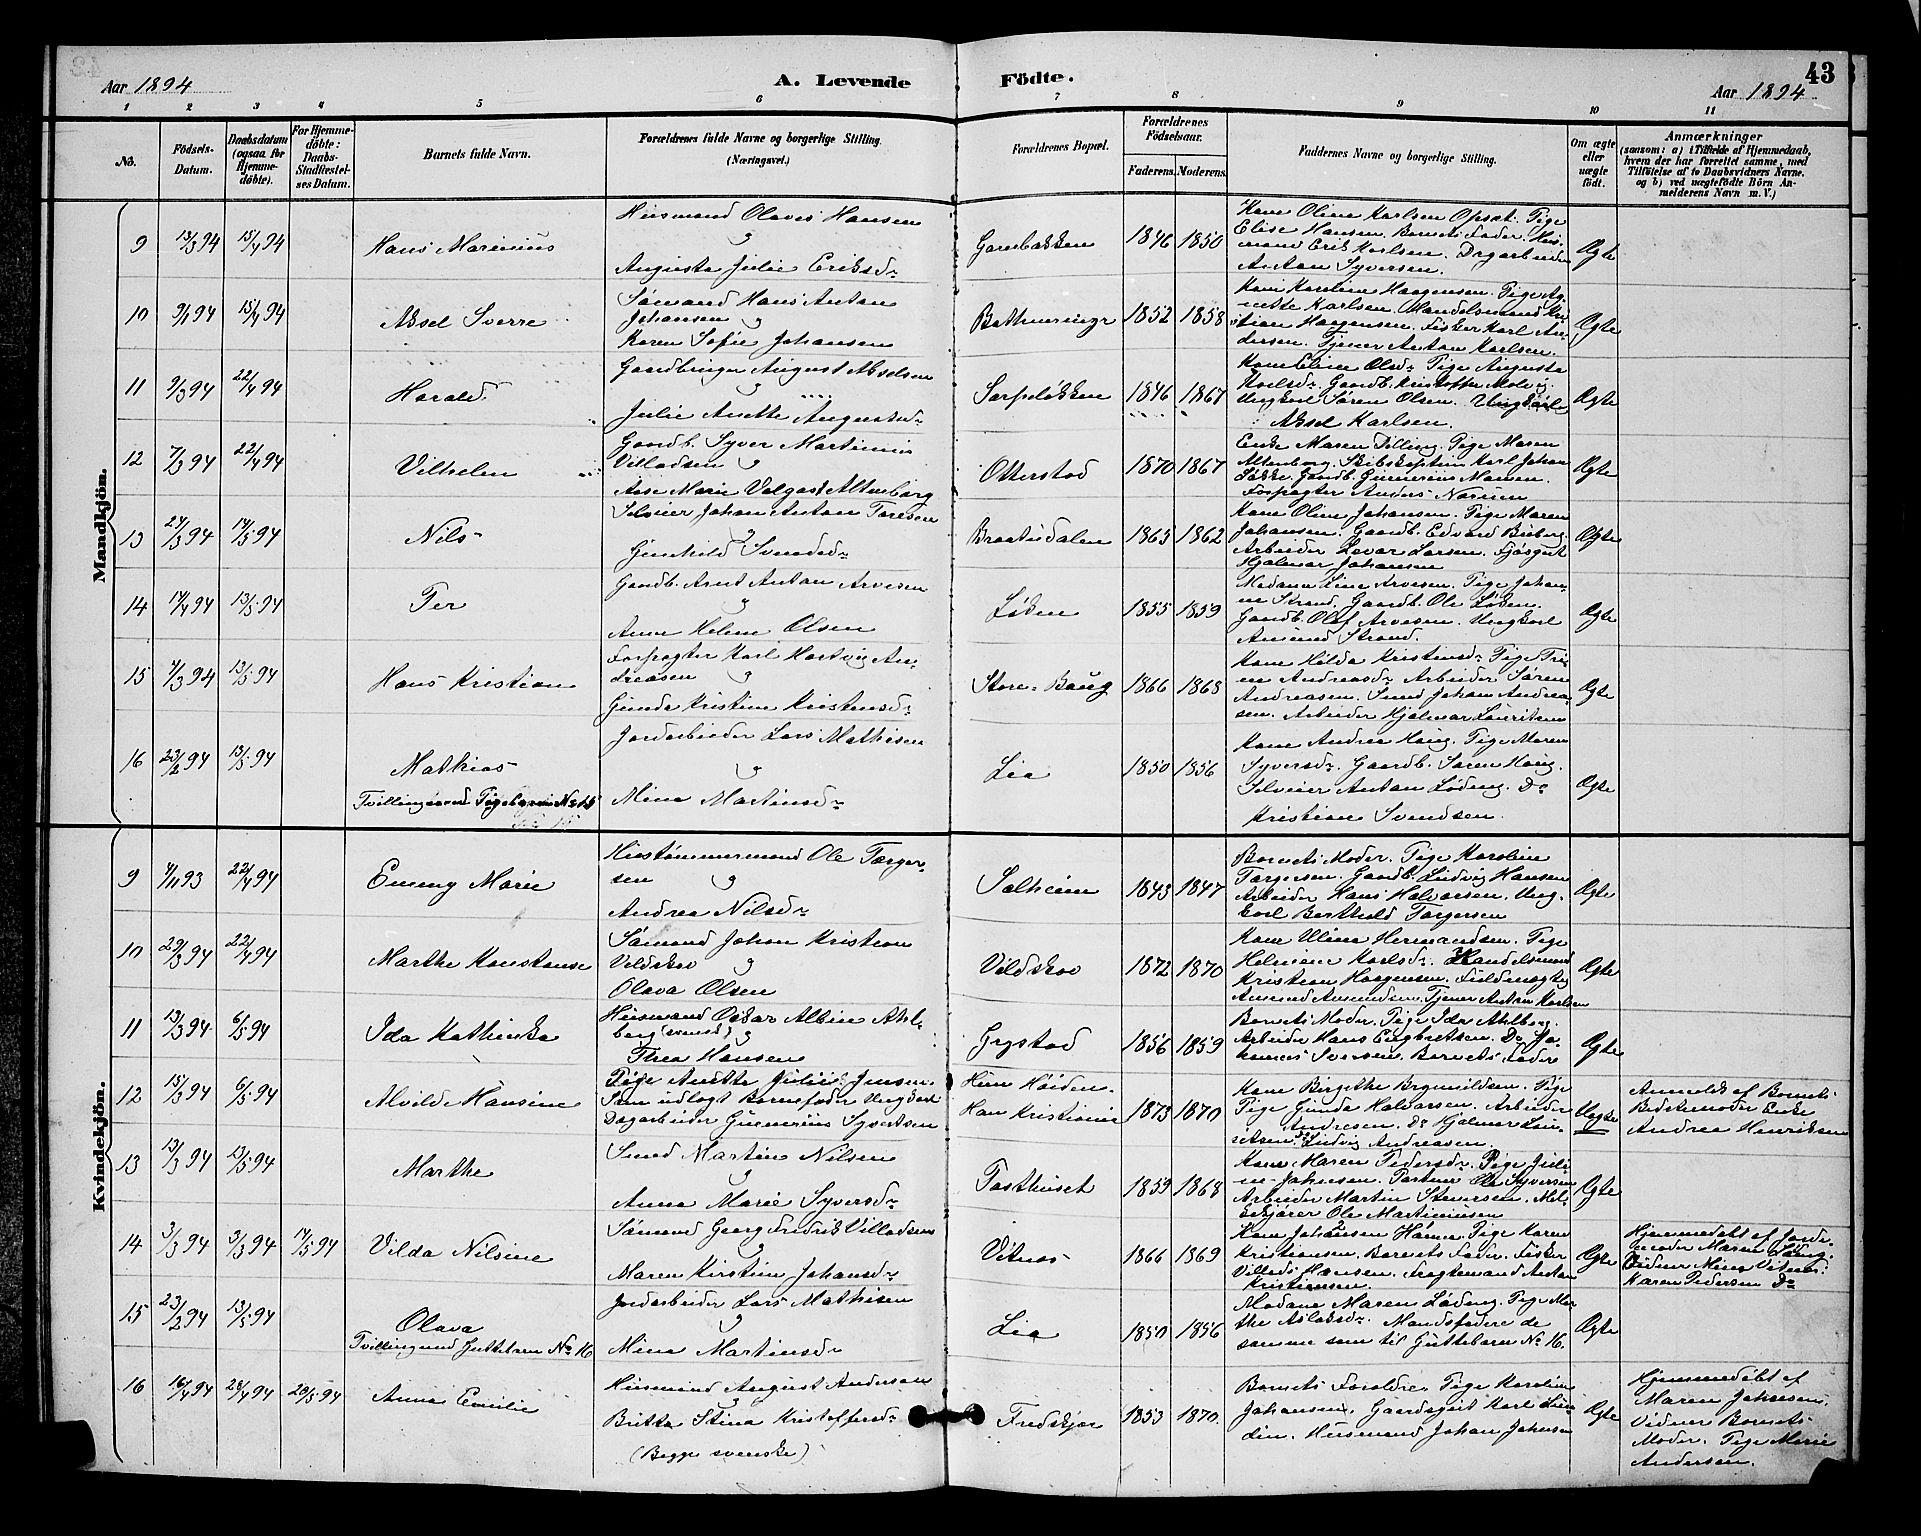 Aar 1894
A. Levende
Födte.
Aar 1894
43
1 2 3 4 5 6 7 8 9 10 11
No.
Födsels-
Datum.
Daabsdatum
(ogsaa for
Hjemme-
döbte).
For Hjemme-
döbte:
Daabs-
Stadfæstel-
ses Datum.
Barnets fulde Navn.
Forældrenes fulde Navne og borgerlige Stilling.
(Næringsvei.)
Forældrenes Bopæl.
Forældrenes
Födselsaar.
Faderens. Moderens.
Faddernes Navne og borgerlige Stilling.
Om ægte
eller
uægte
födt.
Anmærkninger
(saasom: a) i Tilfælde af Hjemmedaab,
hvem der har forrettet samme, med
Tilföielse af to Daabsvidners Navne,
og b) ved uægtefödte Börn An-
melderens Navn m. V.)
Mandkjön.
9 13/3 94 15/4 94 Hans Marinius
Husmand Olaves Hansen
og
Augusta Julie Eriksdr
Garnbakken 1846 1850
Kone Oline Karlsen Opsæt. Pige
Elise Hansen. Barnets Fader. Hus-
mand Erik Karlsen. Dagarbeider
Anton Syversen.
Ægte
10 9/1 94 15/4 94 Aksel Sverre
Sömand Hans Anton
Johansen og
Karen Sofie Johansen
1852 1858
Kone Karoline Haagensen. Pige Ag-
nette Karlsen. Handelsmand Kri-
stian Haagensen. Fisker Karl An-
dersen. Tjener Anton Karlsen.
Ægte
11 9/3 94 22/4 94 Harald
Gaardbruger August Akselsen
og
Julie Anette Augustsdr
Sarpeløkken 1846 1867
Kone Eline Olsdr Pige Augusta
Karlsdr. Gaardb. Kristoffer Molvig
Ungkarl Søren Olsen. Ungkarl
Aksel Karlsen.
Ægte
12 7/3 94 22/4 94 Vilhelm
Gaardb. Syver Martinius
Villadsen og
Aase Marie Valgast Altenborg
Otterstad 1870 1867
Enke Maren Dilling. Pige Maren
Altenborg. Skibskaptein Karl Johan
Løkke. Gaardb. Gunerius Mamen.
Forpagter Anders Narum
Ægte
13 24/3 94 14/5 94 Nils
Selveier Johan Anton Taresen
og
Gunhild Svendsdr
Braatudalen 1863 1862
Kone Oline Johansen. Pige Maren
Johansen. Gaardb. Edvard Buberg.
Arbeider Levor Larsen. Fjøsgut
Hjalmar Johansen
Ægte
14 17/4 94 13/5 94 Per
Gaardb. Arnt Anton Arvesen
og
Anne Helene Olsen
Löden 1855 1859
Madame Lina Arvesen. Pige Johan-
ne Strand. Gaardb. Ole Löden.
Gaardb. Olaf Arvesen. Ungkarl
Amund Strand.
Ægte
15 7/3 94 13/5 94 Hans Kristian
Forpagter Karl Hartvig An-
dreasen og
Gunda Kristine Kristensdr
Store-Baug 1866 1868
Kone Hilda Kristensdr Pige Tri-
ne Andreasdr Arbeider Søren
Andreasen. Smed Johan Andrea-
sen. Arbeider Hjalmar Lauritsen
Ægte
16 23/2 94 13/5 94 Mathias
Tvilling med Pigebarn No 15
Jordarbeider Lars Mathisen
og
Mina Martinsdr
Lia 1850 1856
Kone Andrea Haug. Pige Maren
Syversdr. Gaardb. Søren Haug.
Selveier Anton Løding. Do
Kristian Svendsen.
Ægte
Kvindekjön.
9 4/11 93 22/4 94 Emmy Marie
Hustømmermand Ole Torger-
sen og
Andrea Nilsdr
Solheim 1843 1847
Barnets Moder. Pige Karoline
Torgersen. Gaardb. Ludvig Hansen
Arbeider Hans Halvorsen. Ung-
karl Berthold Torgersen
Ægte
10 29/3 94 22/4 94 Marthe Konstanse
Sömand Johan Kristian
Vildskov og
Olava Olsen
Vildskov 1872 1870
Kone Ulina Hermandsen. Pige
Helmine Karlsdr. Handelsmand
Kristian Haagensen. Fuldmægtig
Amund Amundsen. Tjener Anton Karlsen
Ægte
11 13/3 94 6/5 94 Ida Kathinka
Husmand Oskar Albin Ahl-
berg (svensk) og
Thea Hansen
Grystad 1856 1859
Barnets Moder. Pige Ida Ahlberg.
Arbeider Hans Engbretsen. Do Jo-
hannes Syversen. Barnets Fader
Ægte
12 15/3 94 6/5 94 Alvilde Hansine
Pige Anette Julie Jensen.
Som udlagt Barnefader Ungkarl
Dagarbeider Gunerius Syvertsen
Hun Høiden.
Han Kristiania 1873 1870
Kone Birgithe Brynildsen. Pige
Pige Gunda Halvorsen. Arbeider
Andresen. Do Hjalmar Lau-
ritsen. Do Ludvig Andreasen.
Uægte
Anmeldt af Barnets
Bedstemoder Enke
Andrea Henriksen
13 13/3 94 13/5 94 Marthe
Smed Martin Nilsen
og
Anna Marie Syversdr
Posthuset 1859 1868
Kone Maren Pedersdr. Pige Juli-
ne Johansen. Portner Ole Syversen
Arbeider Martin Stenersen. Mel-
kekjører Ole Martinusen
Ægte
14 3/3 94 3/3 94 14/5 94 Vilda Nilsine
Sömand Georg Fredrik Villadsen
og
Maren Kirstine Johansdr
Vitnes 1866 1869
Kone Johanne Hansen. Pige Karen
Kristiansen. Barnets Fader. Fisker
Villads Hansen. Fragtemand Anton
Kristiansen
Ægte
Hjemmedøbt af Jorde-
moder Maren Løding.
Vidner Mina Vitnes.
Karen Pedersen Do
15 23/2 94 13/5 94 Olava
Tvilling med Guttebarn No 16
Jordarbeider Lars Mathisen
og
Mina Martinsdr
Lia 1850 1856
Madame Maren Løding. Pige Mar-
the Aslaksdr. Mandsfadere de
samme som til Guttebarn No 16.
Ægte
16 16/4 94 28/4 94 20/5 94 Anna Emilie
Husmand August Andersen
Britta Stina Kristoffersdr
(Begge svenske)
Fredskjær 1853 1870.
Barnets Forældre. Pige Karoline
Johansen. Gaardsgut Karl Lun-
din. Husmand Johan Johansen
Ægte
Hjemmedøbt af
Maren Johansen.
Vidner Barnets
Moder. Pige Marie
Andersen.